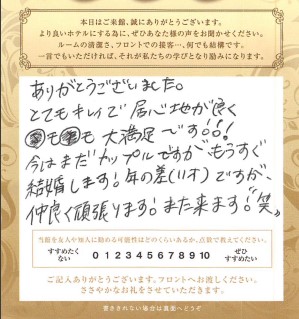 本日はご来館、誠にありがとうございます。
より良いホテルにする為に、ぜひあなた様の声をお聞かせください。
ルームの清潔さ、フロントでの接客…、何でも結構です。
一言でもいただければ、それが私たちの学びとなり励みになります。
ありがとうございました。
とてもキレイで居心地が良く
も も 大満足です!!!
今はまだカップルですがもうすぐ
結婚します!年の差(11才)ですが、
仲良く頑張ります!また来ます!"笑"
当館を友人や知人に勧める可能性はどのくらいあるか、点数で教えてください。
すすめたくない 0 1 2 3 4 5 6 7 8 9 10 ぜひすすめたい
ご記入ありがとうございます。フロントへお渡しください。
ささやかなお礼をさせていただきます。
書ききれない場合は裏面へどうぞ